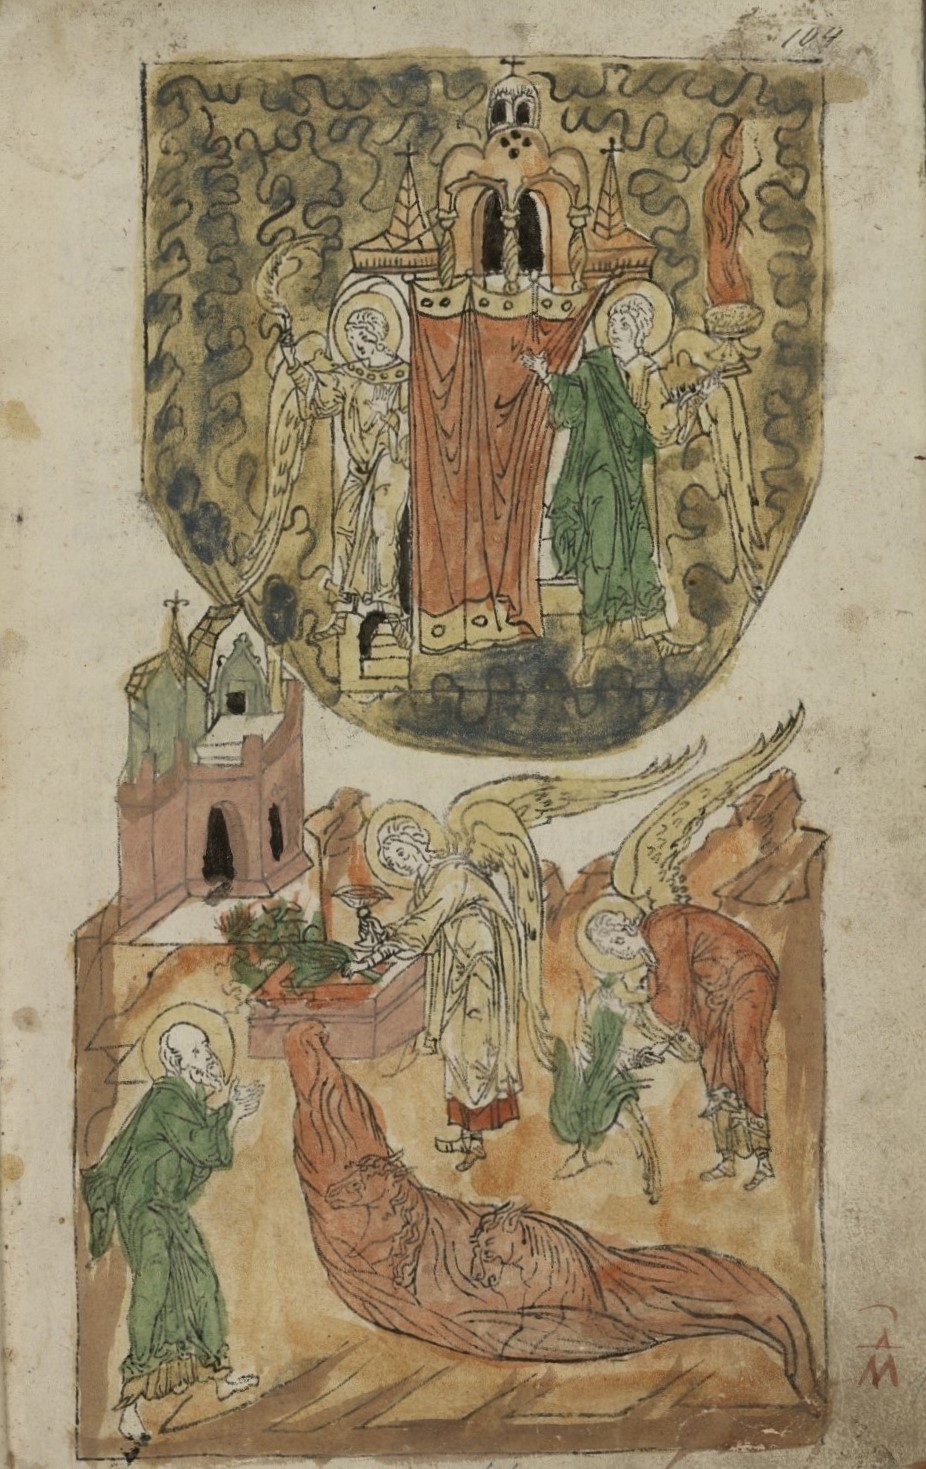 104
М